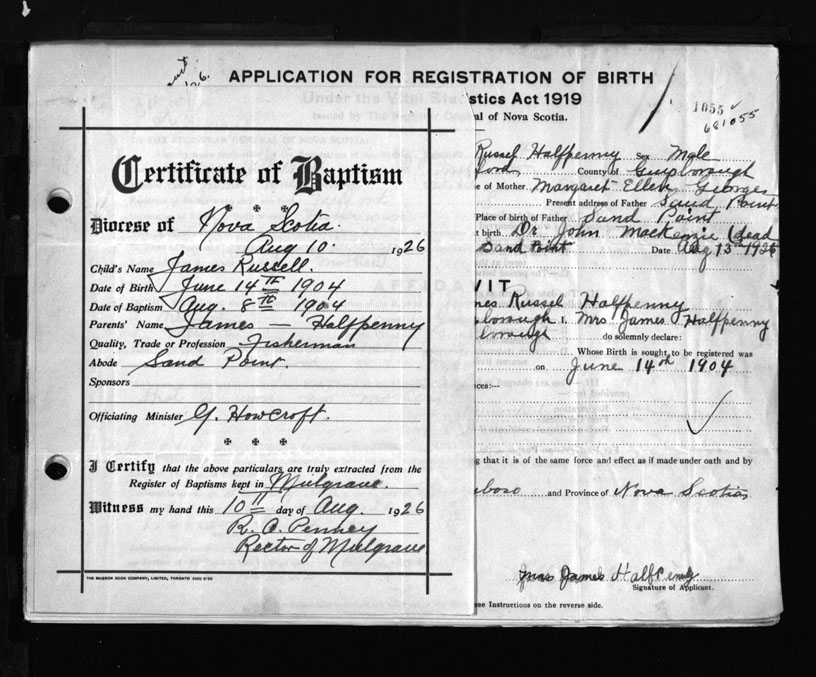 APPLICATION FOR REGISTRATION OF BIRTH
stics Act 1919
al of Nova Scotia.
1055
681055
Certificate of Baptism
Diocese of Nova Scotia.
Aug 10. 1926
Child's Name James Russell.
Date of Birth June 14th 1904
Date of Baptism Aug. 8th 1904
Parents' Name James — Halfpenny
Quality, Trade or Profession Fisherman
Abode Sand Point.
Sponsors
Officiating Minister G. Howcroft.
I Certify that the above particulars are truly extracted from the
Register of Baptisms kept in Mulgrave.
Witness my hand this 10th day of Aug. 1926
R. A. Penney
Rector of Mulgrave
THE MUSSON BOOK COMPANY, LIMITED, TORONTO
Russel Halfpenny Sex Male
ford County of Guysborough
e of Mother Margaret Ellen Georges
Present address of Father Sand Point
Place of birth of Father Sand Point
t birth. Dr John MacKenzie (dead
Sand Point Date Aug 13th 1926
VIT
mes Russel Halfpenny
sborough I, Mrs James Halfpenny
borough do solemnly declare:
Whose Birth is sought to be registered was
on June 14th 1904
ces:—
ng that it is of the same force and effect as if made under oath and by
and Province of Nova Scotia
Mrs James Halfpenny
Signature of Applicant.
see Instructions on the reverse side.